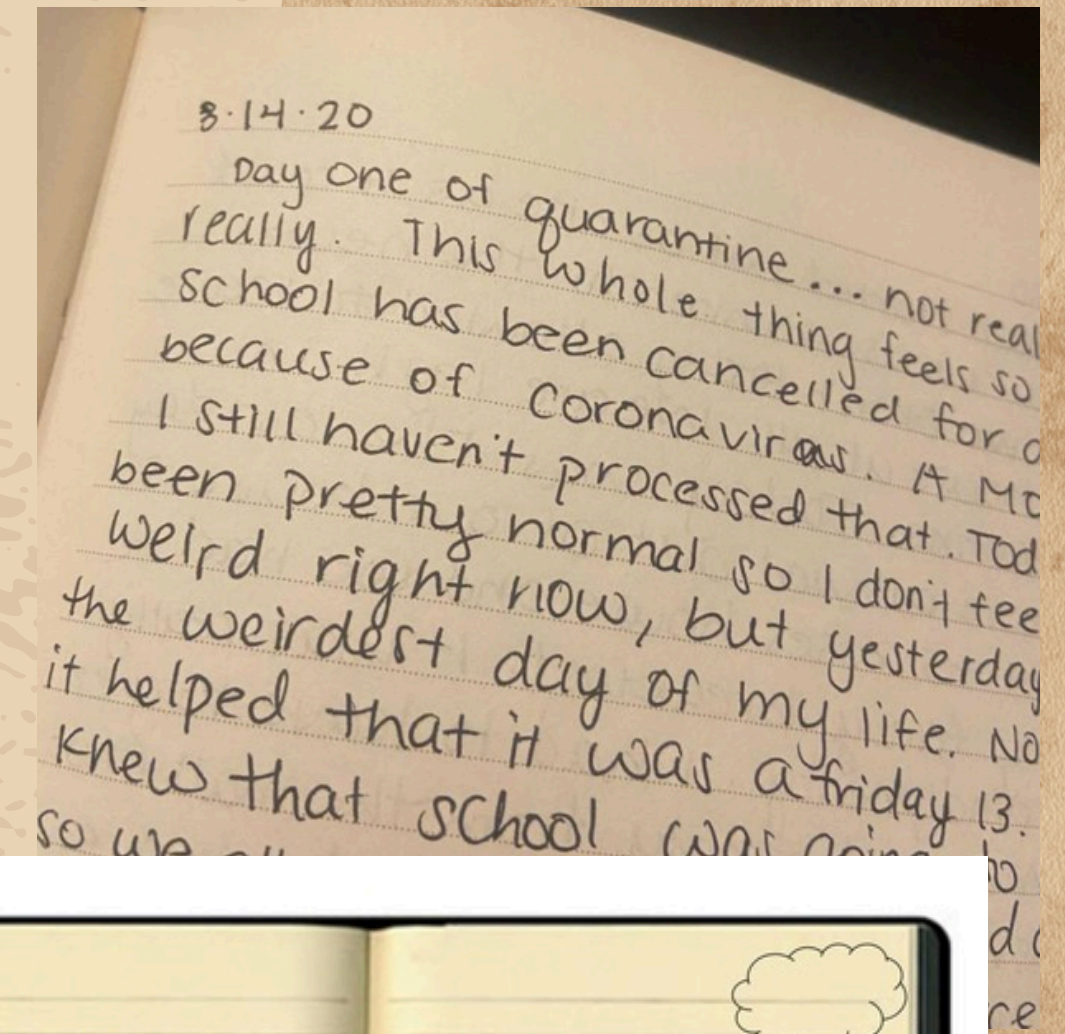 3.14.20
Day one of quarantine... not real
really. This whole thing feels so
school has been cancelled for a
because of Coronavirus. A Mo
I still haven't processed that. Tod
been pretty normal so I don't fee
weird right now, but yesterday
the weirdest day of my life. No
it helped that it was a friday 13.
Knew that school was going to
so we